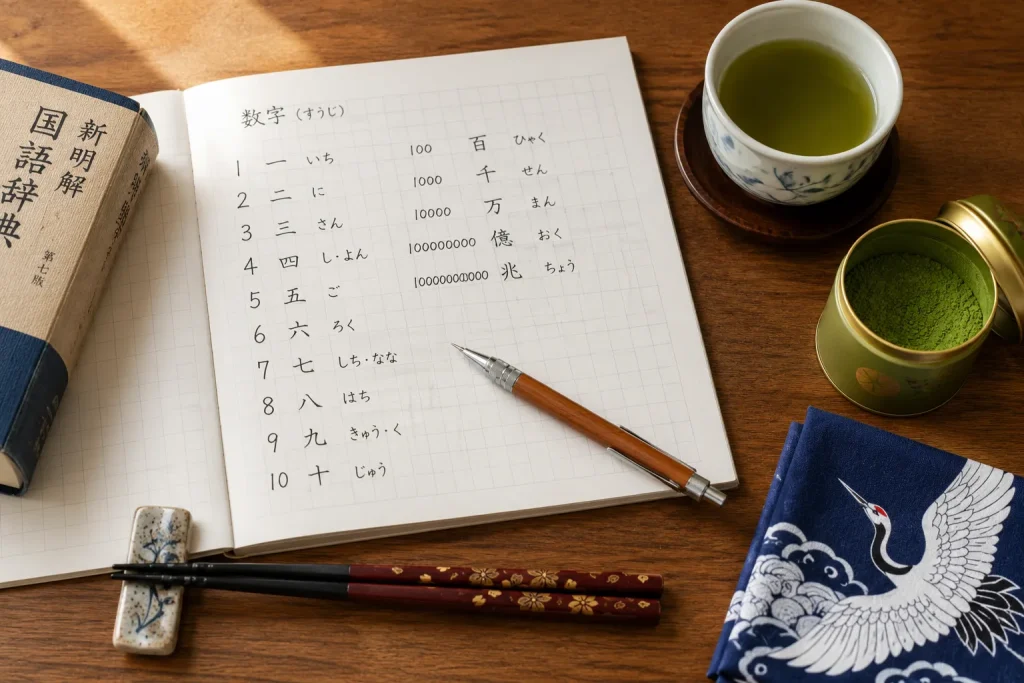 新明解
国語辞典
第七版
数字 (すうじ)
1 一 いち
2 二 に
3 三 さん
4 四 し・よん
5 五 ご
6 六 ろく
7 七 しち・なな
8 八 はち
9 九 きゅう・く
10 十 じゅう
100 百 ひゃく
1000 千 せん
10000 万 まん
100000000 億 おく
兆 ちょう